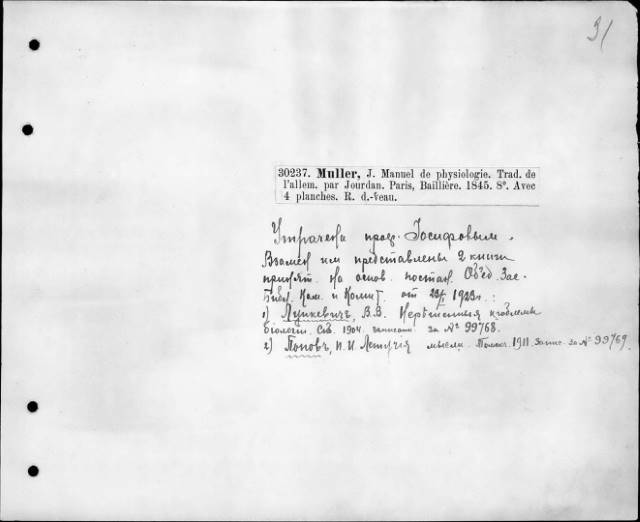 91
30237. Muller, J. Manuel de physiologie. Trad. de
l'allem. par Jourdan. Paris, Baillière. 1845. 8°. Avec
4 planches. R. d.-veau.
Утрачена проф. Іосифовым.
Взамен им представлены 2 книги
принят. на основ. постан. Объед. Зас.
Библ. Ком. и Комит. от 1923 г.:
1) Лункевичъ, В.В.
біологіи. Спб. 1904. записан. за № 99768.
2) Поповъ, П.И. Летучія мысли. 1911. Запис. за № 99769.